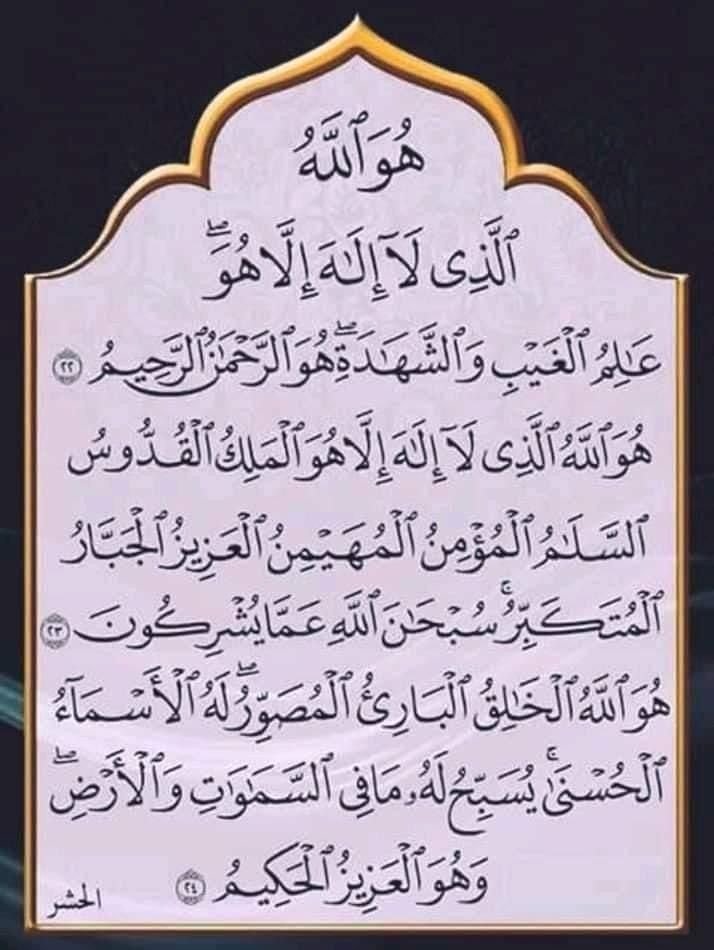 هُوَ ٱللَّهُ
ٱلَّذِى لَآ إِلَٰهَ إِلَّا هُوَ ۖ
عَٰلِمُ ٱلْغَيْبِ وَٱلشَّهَٰدَةِ ۖ هُوَ ٱلرَّحْمَٰنُ ٱلرَّحِيمُ ٢٢
هُوَ ٱللَّهُ ٱلَّذِى لَآ إِلَٰهَ إِلَّا هُوَ ٱلْمَلِكُ ٱلْقُدُّوسُ
ٱلسَّلَٰمُ ٱلْمُؤْمِنُ ٱلْمُهَيْمِنُ ٱلْعَزِيزُ ٱلْجَبَّارُ
ٱلْمُتَكَبِّرُ ۚ سُبْحَٰنَ ٱللَّهِ عَمَّا يُشْرِكُونَ ٢٣
هُوَ ٱللَّهُ ٱلْخَٰلِقُ ٱلْبَارِئُ ٱلْمُصَوِّرُ ۖ لَهُ ٱلْأَسْمَآءُ
ٱلْحُسْنَىٰ ۚ يُسَبِّحُ لَهُۥ مَا فِى ٱلسَّمَٰوَٰتِ وَٱلْأَرْضِ ۖ
وَهُوَ ٱلْعَزِيزُ ٱلْحَكِيمُ ٢٤
الحشر